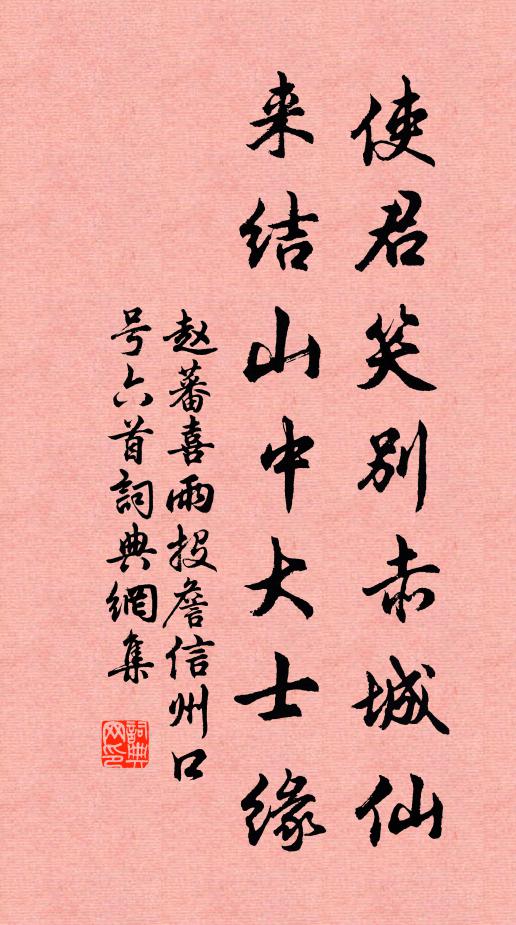 使君笑别赤城仙
来结山中大士缘
赵蕃喜雨投詹信州口
号六首詞典網集
詞典
网印